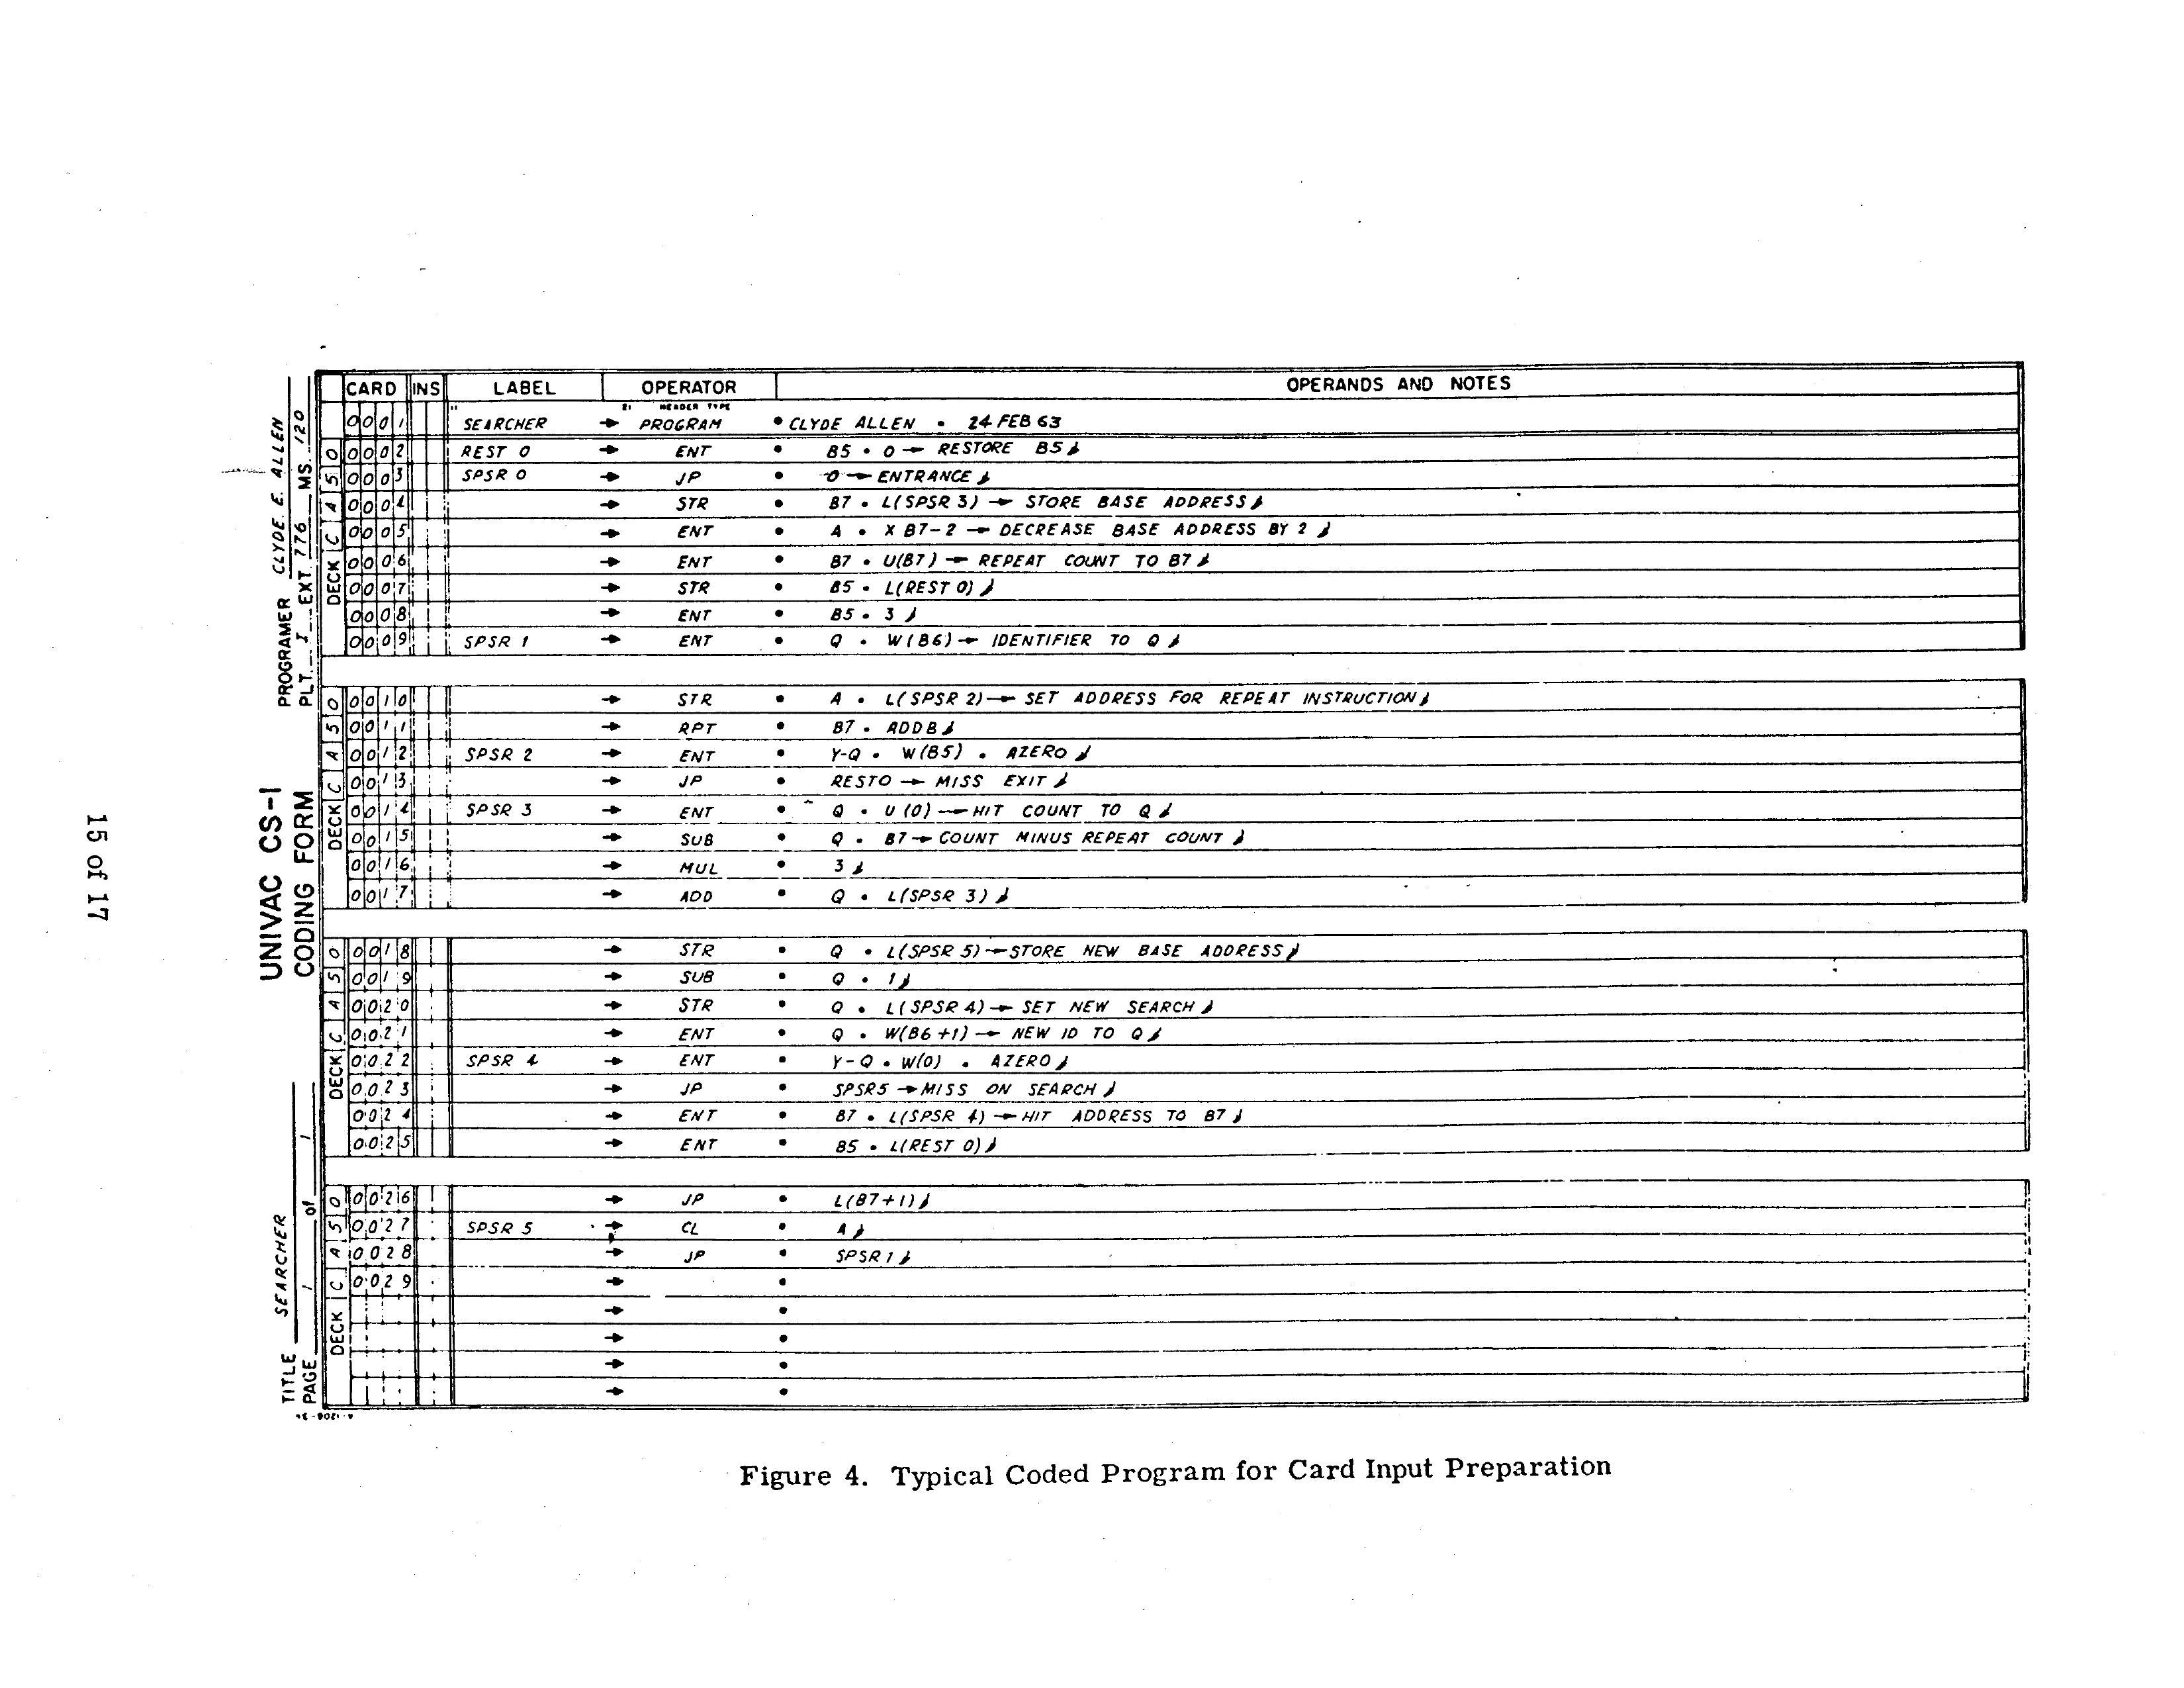 15 of 17
UNIVAC CS-1
CODING FORM
PROGRAMER CLYDE E. ALLEN
PLT. I EXT. 776 MS. 120
TITLE SEARCHER
PAGE 1 of 1
CARD INS LABEL OPERATOR OPERANDS AND NOTES
HEADER TYPE
0001 SEARCHER → PROGRAM • CLYDE ALLEN • 24 FEB 63
DECK C A 5 0
0002 REST 0 → ENT • B5 • 0 → RESTORE B5
0003 SPSR 0 → JP • 0 → ENTRANCE
0004 → STR • B7 • L(SPSR 3) → STORE BASE ADDRESS
0005 → ENT • A • X B7-2 → DECREASE BASE ADDRESS BY 2
0006 → ENT • B7 • U(B7) → REPEAT COUNT TO B7
0007 → STR • B5 • L(REST 0)
0008 → ENT • B5 • 3
0009 SPSR 1 → ENT • Q • W(B6) → IDENTIFIER TO Q
DECK C A 5 0
0010 → STR • A • L(SPSR 2) → SET ADDRESS FOR REPEAT INSTRUCTION
0011 → RPT • B7 • ADDB
0012 SPSR 2 → ENT • Y-Q • W(B5) • AZERO
0013 → JP • RESTO → MISS EXIT
0014 SPSR 3 → ENT • Q • U(0) → HIT COUNT TO Q
0015 → SUB • Q • B7 → COUNT MINUS REPEAT COUNT
0016 → MUL • 3
0017 → ADD • Q • L(SPSR 3)
DECK C A 5 0
0018 → STR • Q • L(SPSR 5) → STORE NEW BASE ADDRESS
0019 → SUB • Q • 1
0020 → STR • Q • L(SPSR 4) → SET NEW SEARCH
0021 → ENT • Q • W(B6+1) → NEW ID TO Q
0022 SPSR 4 → ENT • Y-Q • W(0) • AZERO
0023 → JP • SPSR5 → MISS ON SEARCH
0024 → ENT • B7 • L(SPSR 4) → HIT ADDRESS TO B7
0025 → ENT • B5 • L(REST 0)
DECK C A 5 0
0026 → JP • L(B7+1)
0027 SPSR 5 → CL • A
0028 → JP • SPSR1
0029 → •
→ •
→ •
→ •
→ •
Figure 4. Typical Coded Program for Card Input Preparation